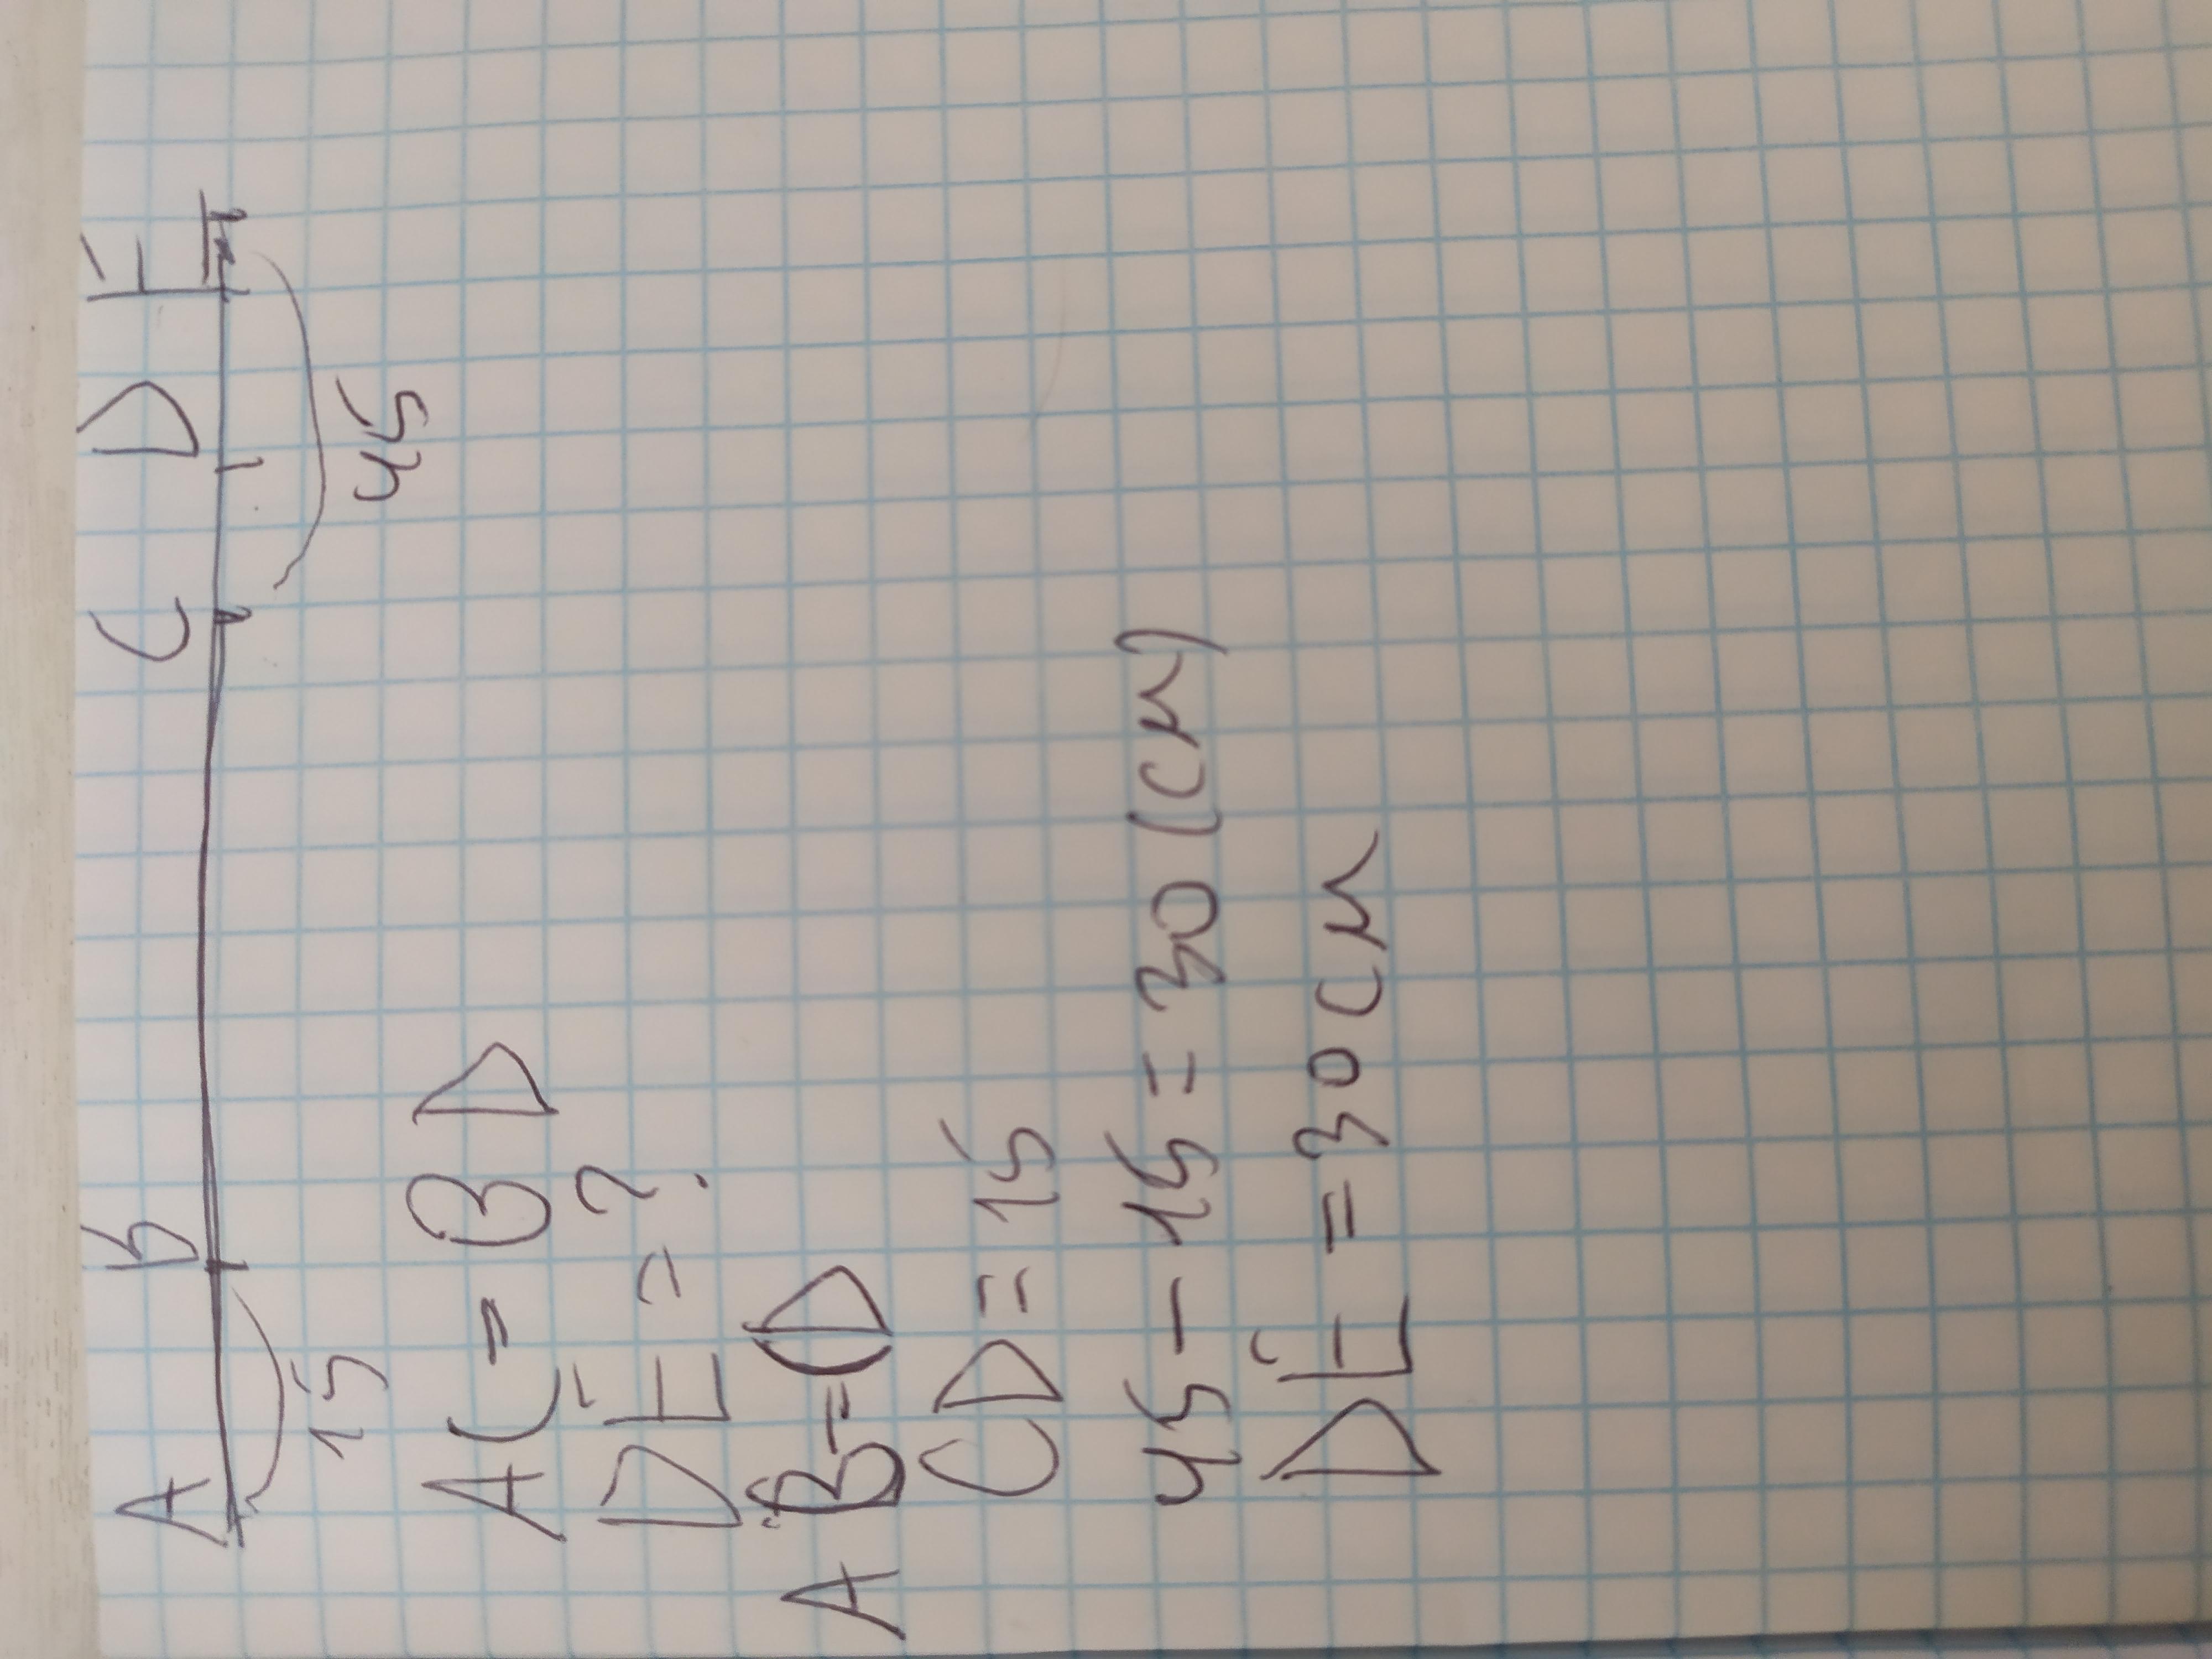 A B C D E
15 45
AC = BD
DE = ?
AB = CD
CD = 15
45 - 15 = 30 (см)
DE = 30 см